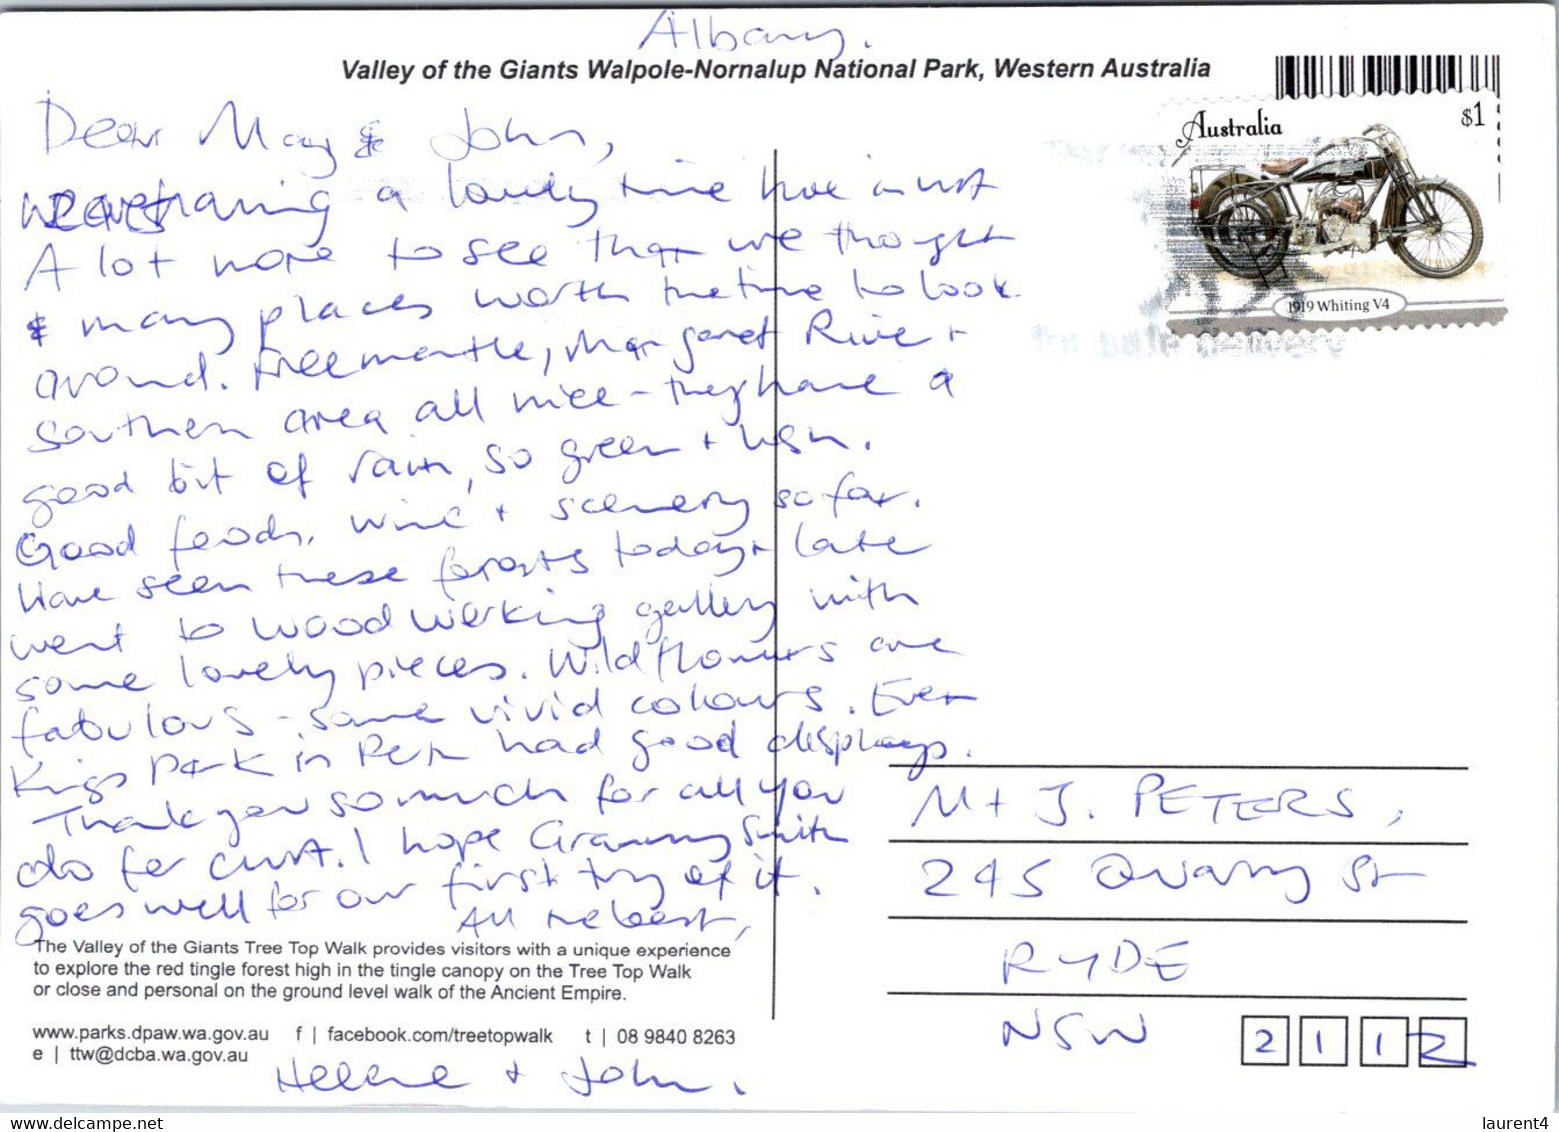 Albany.
Valley of the Giants Walpole-Nornalup National Park, Western Australia
Australia
$1
1919 Whiting V4
Dear May & John,
having a lovely time here in west
A lot more to see than we thought
& many places worth the time to look
around. Freemantle, Margaret River +
southern area all nice - they have a
good bit of rain, so green + lush.
Good food, wine + scenery so far.
Have seen these forests today + late
went to wood working gallery with
some lovely pieces. Wildflowers are
fabulous - some vivid colours. Even
Kings Park in Perth had good displays.
Thank you so much for all you
do for curt. I hope Granny Smith
goes well for our first try of it.
All the best,
The Valley of the Giants Tree Top Walk provides visitors with a unique experience
to explore the red tingle forest high in the tingle canopy on the Tree Top Walk
or close and personal on the ground level walk of the Ancient Empire.
www.parks.dpaw.wa.gov.au f | facebook.com/treetopwalk t | 08 9840 8263
e | ttw@dcba.wa.gov.au
Helene + John.
M + J. PETERS,
245 Quarry St
RYDE
NSW 2112
www.delcampe.net
laurent4